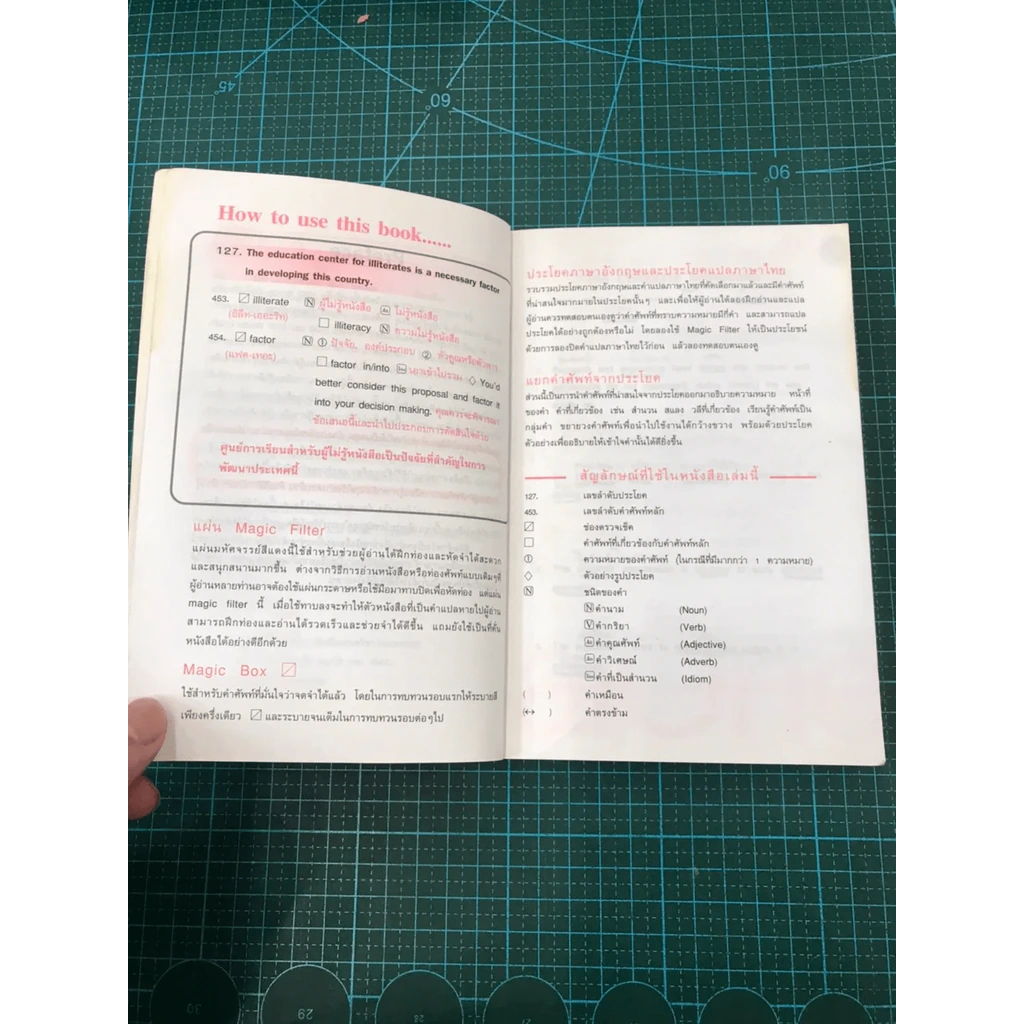 How to use this book......
127. The education center for illiterates is a necessary factor
in developing this country.
453. ☑ illiterate Ⓝ ผู้ไม่รู้หนังสือ Ⓐ ไม่รู้หนังสือ
(อิลิท-เทอะริท)
☐ illiteracy Ⓝ ความไม่รู้หนังสือ
454. ☑ factor Ⓝ ① ปัจจัย, องค์ประกอบ ② ตัวคูณหรือตัวหาร
(แฟค-เทอะ)
☐ factor in/into เอาเข้าไปรวม ◇ You'd
better consider this proposal and factor it
into your decision making. คุณควรจะพิจารณา
ข้อเสนอนี้และนำไปประกอบการตัดสินใจด้วย
ศูนย์การเรียนสำหรับผู้ไม่รู้หนังสือเป็นปัจจัยที่สำคัญในการ
พัฒนาประเทศนี้
แผ่น Magic Filter
แผ่นมหัศจรรย์สีแดงนี้ใช้สำหรับช่วยผู้อ่านได้ฝึกท่องและหัดจำได้สะดวก
และสนุกสนานมากขึ้น ต่างจากวิธีการอ่านหนังสือหรือท่องศัพท์แบบเดิมๆที่
ผู้อ่านหลายท่านอาจต้องใช้แผ่นกระดาษหรือใช้มือมาทาบปิดเพื่อหัดท่อง แต่แผ่น
magic filter นี้ เมื่อใช้ทาบลงจะทำให้ตัวหนังสือที่เป็นคำแปลหายไปผู้อ่าน
สามารถฝึกท่องและอ่านได้รวดเร็วและช่วยจำได้ดีขึ้น แถมยังใช้เป็นที่คั่น
หนังสือได้อย่างดีอีกด้วย
Magic Box ☑
ใช้สำหรับคำศัพท์ที่มั่นใจว่าจดจำได้แล้ว โดยในการทบทวนรอบแรกให้ระบายสี
เพียงครึ่งเดียว ☑ และระบายจนเต็มในการทบทวนรอบต่อๆไป
ประโยคภาษาอังกฤษและประโยคแปลภาษาไทย
รวบรวมประโยคภาษาอังกฤษและคำแปลภาษาไทยที่คัดเลือกมาแล้วและมีคำศัพท์
ที่น่าสนใจมากมายในประโยคนั้นๆ และเพื่อให้ผู้อ่านได้ลองฝึกอ่านและแปล
ผู้อ่านควรทดสอบตนเองดูว่าคำศัพท์ที่ทราบความหมายมีกี่คำ และสามารถแปล
ประโยคได้อย่างถูกต้องหรือไม่ โดยลองใช้ Magic Filter ให้เป็นประโยชน์
ด้วยการลองปิดคำแปลภาษาไทยไว้ก่อน แล้วลองทดสอบตนเองดู
แยกคำศัพท์จากประโยค
ส่วนนี้เป็นการนำคำศัพท์ที่น่าสนใจจากประโยคออกมาอธิบายความหมาย หน้าที่
ของคำ คำที่เกี่ยวข้อง เช่น สำนวน สแลง วลีที่เกี่ยวข้อง เรียนรู้คำศัพท์เป็น
กลุ่มคำ ขยายวงคำศัพท์เพื่อนำไปใช้งานได้กว้างขวาง พร้อมด้วยประโยค
ตัวอย่างเพื่ออธิบายให้เข้าใจคำนั้นได้ดียิ่งขึ้น
สัญลักษณ์ที่ใช้ในหนังสือเล่มนี้
127. เลขลำดับประโยค
453. เลขลำดับคำศัพท์หลัก
☑ ช่องตรวจเช็ค
☐ คำศัพท์ที่เกี่ยวข้องกับคำศัพท์หลัก
① ความหมายของคำศัพท์ (ในกรณีที่มีมากกว่า 1 ความหมาย)
◇ ตัวอย่างรูปประโยค
Ⓝ ชนิดของคำ
N คำนาม (Noun)
V คำกริยา (Verb)
คำคุณศัพท์ (Adjective)
คำวิเศษณ์ (Adverb)
คำที่เป็นสำนวน (Idiom)
( ) คำเหมือน
(↔ ) คำตรงข้าม
45°
60°
90°
30
29
28